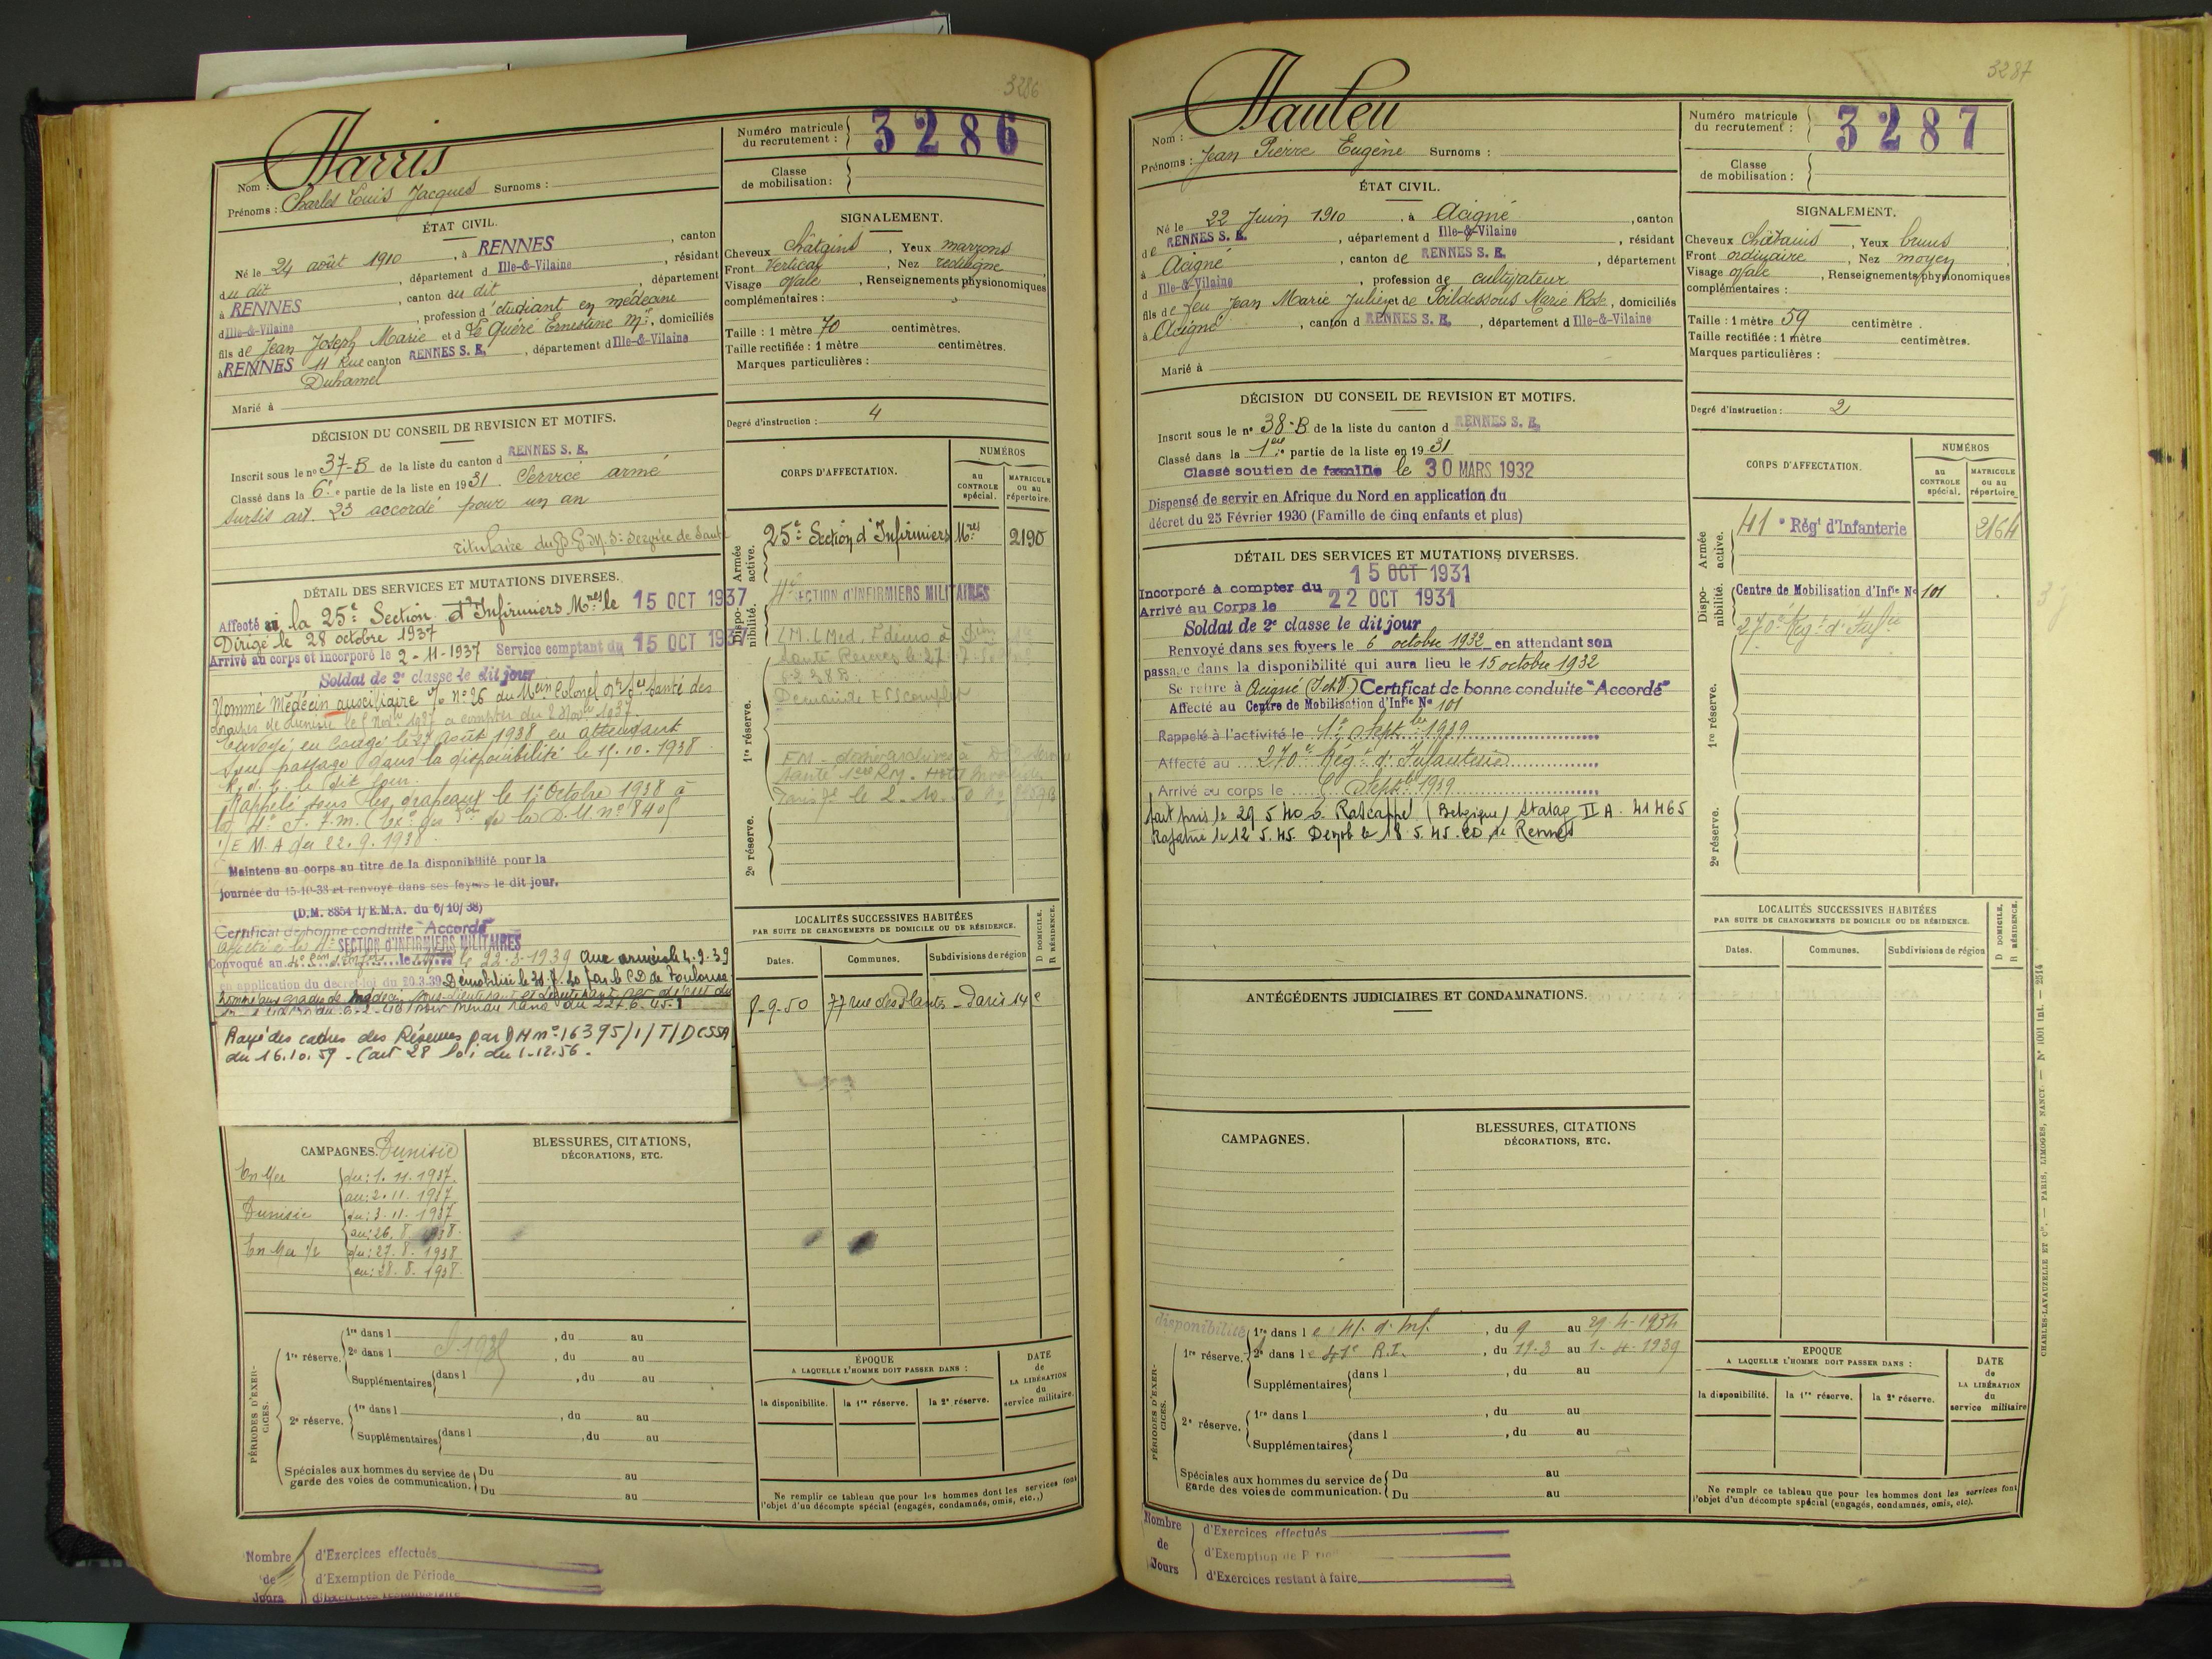 3286
Nom : Harris
Prénoms : Charles Louis Jacques Surnoms :
ÉTAT CIVIL.
Né le 24 août 1910, à RENNES, canton
du dit, département d Ille-&-Vilaine, résidant
à RENNES, canton du dit, département
d Ille-&-Vilaine, profession d'étudiant en médecine
fils de Jean Joseph Marie et d Le Quéré Ernestine Mie, domiciliés
à RENNES 11 Rue canton RENNES S. E., département d Ille-&-Vilaine
Duhamel
Marié à
DÉCISION DU CONSEIL DE REVISION ET MOTIFS.
Inscrit sous le no 37-B de la liste du canton d RENNES S. E.
Classé dans la 6e partie de la liste en 1931. Service armé
Sursis art. 23 accordé pour un an
titulaire du B.P.M.S. Service de Santé
DÉTAIL DES SERVICES ET MUTATIONS DIVERSES.
Affecté à la 25e Section d'Infirmiers Mres le 15 OCT 1937
Dirigé le 28 octobre 1937
Arrivé au corps et incorporé le 2-11-1937 Service comptant du 15 OCT 1937
Soldat de 2e classe le dit jour
Nommé Médecin auxiliaire no 26 du Méin Colonel Santé des
Troupes de Tunisie le Novre 1937 à compter du 2 Novre 1937
Envoyé en congé le 27 août 1938 en attendant
son passage dans la disponibilité le 15.10.1938
R. d. c. le dit jour.
Rappelé sous les drapeaux le 1er Octobre 1938 à
la 4e S. I. M. de la D. M no 8405
1/E M. A du 22.9.1938
Maintenu au corps au titre de la disponibilité pour la
journée du 15-10-38 et renvoyé dans ses foyers le dit jour.
(D.M. 8854 1/E.M.A. du 6/10/38)
Certificat de bonne conduite "Accordé"
Affecté à la 4e SECTION d'INFIRMIERS MILITAIRES
Convoqué au le 22-3-1939 arrivé le 4.9.39
en application du décret-loi du 20.3.39 Démobilisé le 31.7.40 par le CD de Toulouse
Nommé aux grades de médecin sous-lieutenant et Lieutenant par décret du
pour prendre rang du
Rayé des cadres des Réserves par DM no 16395/1/T/DCSSA
du 16.10.59 - (art 28 loi du 1-12.56.
CAMPAGNES. Tunisie
En Mer du : 1.11.1937.
au : 2.11.1937
Tunisie du : 3.11.1937
au : 26.8.1938.
En Mer du : 27.8.1938
au : 28.8.1938
BLESSURES, CITATIONS,
DÉCORATIONS, ETC.
PÉRIODES D'EXERCICES.
1re réserve.
1re dans l , du au
2e dans l , du au
Supplémentaires dans l , du au
2e réserve.
1re dans l , du au
Supplémentaires dans l , du au
Spéciales aux hommes du service de
garde des voies de communication.
Du au
Du au
Nombre
de
Jours
d'Exercices effectués
d'Exemption de Période
Numéro matricule
du recrutement : 3286
Classe
de mobilisation :
SIGNALEMENT.
Cheveux châtains, Yeux marrons
Front Vertical, Nez rectiligne
Visage ovale, Renseignements physionomiques
complémentaires :
Taille : 1 mètre 70 centimètres.
Taille rectifiée : 1 mètre centimètres.
Marques particulières :
Degré d'instruction : 4
CORPS D'AFFECTATION.
NUMÉROS
au
CONTROLE
spécial.
MATRICULE
ou au
répertoire.
Armée
active.
25e Section d'Infirmiers Mres 2190
Dispo-
nibilité.
4e SECTION d'INFIRMIERS MILITAIRES
1re réserve.
2e réserve.
LOCALITÉS SUCCESSIVES HABITÉES
PAR SUITE DE CHANGEMENTS DE DOMICILE OU DE RÉSIDENCE.
D DOMICILE.
R RÉSIDENCE.
Dates. Communes. Subdivisions de région
8-9-50 77 rue des Plantes - Paris 14e
ÉPOQUE
A LAQUELLE L'HOMME DOIT PASSER DANS :
DATE
de
LA LIBÉRATION
du
service militaire.
la disponibilite. la 1re réserve. la 2e réserve.
Ne remplir ce tableau que pour les hommes dont les services font
l'objet d'un décompte spécial (engagés, condamnés, omis, etc.,)
3287
Nom : Hauteu
Prénoms : Jean Pierre Eugène Surnoms :
ÉTAT CIVIL.
Né le 22 Juin 1910, à Acigné, canton
de RENNES S. E., département d Ille-&-Vilaine, résidant
à Acigné, canton de RENNES S. E., département
d Ille-&-Vilaine, profession de cultivateur
fils de feu Jean Marie Julien et de Poildessous Marie Rose, domiciliés
à Acigné, canton d RENNES S. E., département d Ille-&-Vilaine
Marié à
DÉCISION DU CONSEIL DE REVISION ET MOTIFS.
Inscrit sous le no 38-B de la liste du canton d RENNES S. E.
Classé dans la 1ere partie de la liste en 1931
Classé soutien de famille le 30 MARS 1932
Dispensé de servir en Afrique du Nord en application du
décret du 25 Février 1930 (Famille de cinq enfants et plus)
DÉTAIL DES SERVICES ET MUTATIONS DIVERSES.
Incorporé à compter du 15 OCT 1931
Arrivé au Corps le 22 OCT 1931
Soldat de 2e classe le dit jour
Renvoyé dans ses foyers le 6 octobre 1932 en attendant son
passage dans la disponibilité qui aura lieu le 15 octobre 1932
Se retire à Acigné (I et V.) Certificat de bonne conduite "Accordé"
Affecté au Centre de Mobilisation d'Infie No 101
Rappelé à l'activité le 1er Septbre 1939
Affecté au 270e Régt d'Infanterie
Arrivé au corps le 6 Septbre 1939
fait pris le 29.5.40 à Ratscappel (Belgique) Stalag II A. 41465
Rapatrié le 12.5.45. Démob le 18.5.45. CD de Rennes
ANTÉCÉDENTS JUDICIAIRES ET CONDAMNATIONS.
CAMPAGNES.
BLESSURES, CITATIONS
DÉCORATIONS, ETC.
PÉRIODES D'EXERCICES.
disponibilité
1re réserve.
1re dans le 41. d'Inf., du 9 au 29-4-1934
2e dans le 41e R.I., du 12.3 au 1-4-1939
Supplémentaires dans l , du au
2e réserve.
1re dans l , du au
Supplémentaires dans l , du au
Spéciales aux hommes du service de
garde des voies de communication.
Du au
Du au
Nombre
de
Jours
d'Exercices effectués
d'Exemption de Période
d'Exercices restant à faire
Numéro matricule
du recrutement : 3287
Classe
de mobilisation :
SIGNALEMENT.
Cheveux châtains, Yeux bruns
Front ordinaire, Nez moyen
Visage ovale, Renseignements physionomiques
complémentaires :
Taille : 1 mètre 59 centimètre.
Taille rectifiée : 1 mètre centimètres.
Marques particulières :
Degré d'instruction : 2
CORPS D'AFFECTATION.
NUMÉROS
au
CONTROLE
spécial.
MATRICULE
ou au
répertoire
Armée
active.
41e Régt d'Infanterie 2164
Dispo-
nibilité.
Centre de Mobilisation d'Infie No 101
270e Régt d'Infie
1re réserve.
2e réserve.
LOCALITÉS SUCCESSIVES HABITÉES
PAR SUITE DE CHANGEMENTS DE DOMICILE OU DE RÉSIDENCE.
D DOMICILE.
R RÉSIDENCE.
Dates. Communes. Subdivisions de région
EPOQUE
A LAQUELLE L'HOMME DOIT PASSER DANS :
DATE
de
LA LIBÉRATION
du
service militaire
la disponibilité. la 1re réserve. la 2e réserve.
Ne remplr ce tableau que pour les hommes dont les services font
l'objet d'un décompte spécial (engagés, condamnés, omis, etc).
CHARLES-LAVAUZELLE ET Cie. — PARIS, LIMOGES, NANCY. — No 4001 int. — 2514